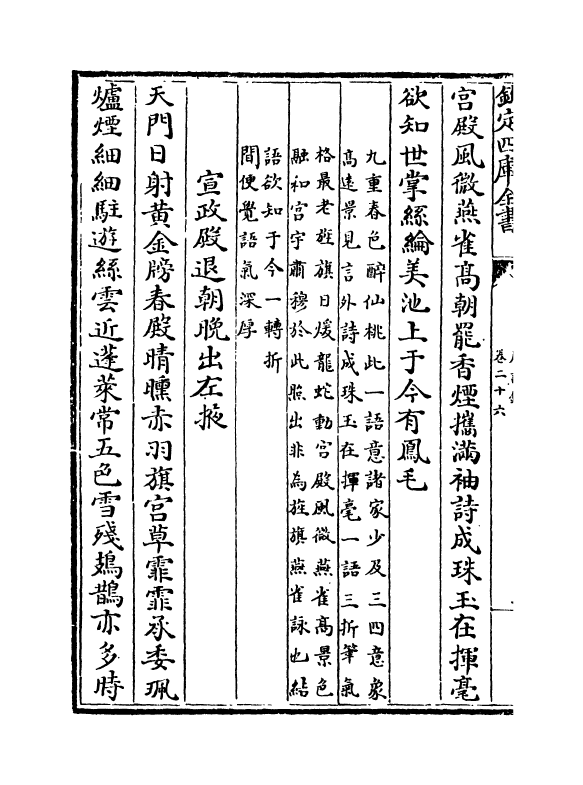 欽定四庫全書
卷二十六
宫殿風微燕雀髙朝罷香煙攜滿袖詩成珠玉在揮毫
欲知世掌絲綸美池上于今有鳳毛
九重春色醉仙桃此一語意諸家少及三四意象
髙逺景見言外詩成珠玉在揮毫一語三折筆氣
格最老旌旗日煖龍蛇動宫殿風微燕雀髙景色
融和宫宇肅穆於此照出非為旌旗燕雀詠也結
語欲知于今一轉折
間便覺語氣深厚
宣政殿退朝晚出左掖
天門日射黄金牓春殿晴曛赤羽旗宫草霏霏承委珮
爐煙細細駐遊絲雲近蓬萊常五色雪殘鳷鵲亦多時